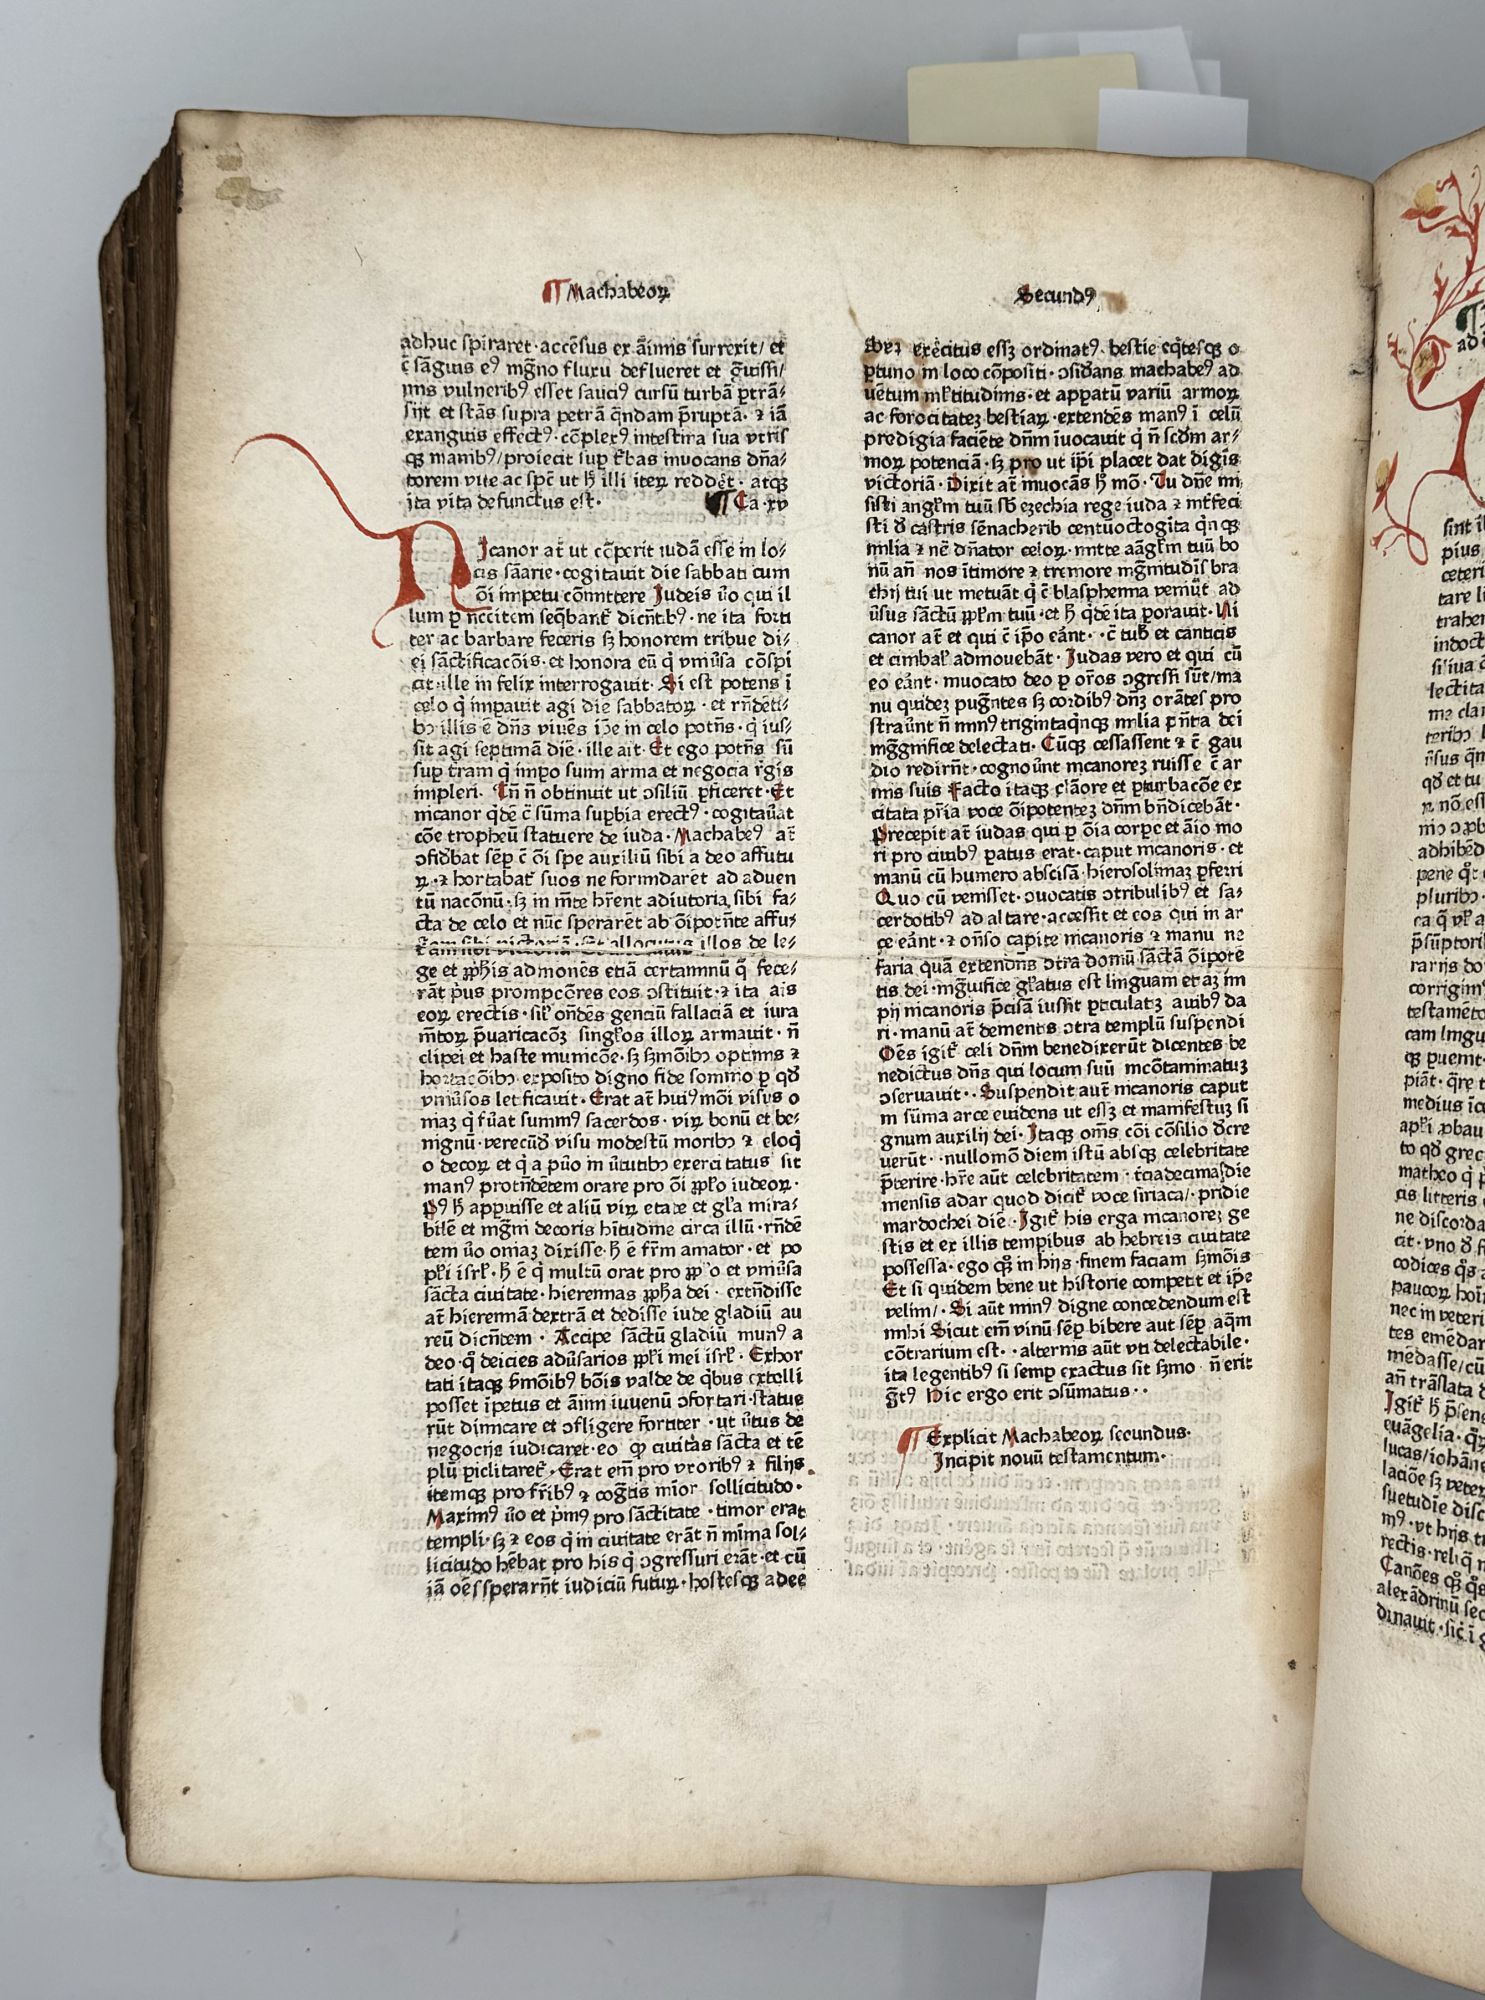 ¶ Machabeoꝝ
Secundꝰ
adhuc spiraret · accēsus ex āimis surrexit / et
c̄ sāguis eꝰ mg̅no fluxu deflueret et g̅uissi/
mis vulneribꝰ esset sauciꝰ cursū turbā ꝑtrā-
sijt et stās supra petrā q̄ndam p̄ruptā · ⁊ iā
exanguis effectꝰ · cōplexꝰ intestina sua vtris
qꝫ manibꝰ / proiecit suꝑ t̄bas inuocans dn̄a-
torem vite ac spc̄ ut h̄ illi iteꝝ redderet · atqꝫ
ita vita defunctus est ·
¶ Ca · xv
NIcanor at̄ ut cōperit iudā esse in lo-
cis sāarie · cogitauit die sabbati cum
ōi impetu cōmittere Judeis ůo qui il
lum ꝑ nc̄citem seq̄bant̄ dicn̄t.bꝰ · ne ita forti
ter ac barbare feceris sꝫ honorem tribue di-
ei sāctificacōis · et honora eū q̇ vniůsa cōspi
cit · ille in felix interrogauit · Si est potens ī
celo q̇ imꝑauit agi die sabbatoꝝ · et rn̄dēti-
bꝰ illis ē dn̄s viuēs ip̄e in celo potn̄s · q̇ ius-
sit agi septimā diē · ille ait · Et ego potn̄s sū
suꝑ t̄ram q̇ imꝑo sumi arma et negocia r̄gis
impleri · Tn̄ n̄ obtinuit ut ꝯsiliū ꝑficeret · Et
nicanor qͥdē c̄ sūma suꝑbia erectꝰ · cogitau̇at
cōe tropheū statuere de iuda · Machabeꝰ at̄
ꝯfid̄bat sēꝑ c̄ ōi spe auxiliū sibi a deo affutu
ꝝ · ⁊ hortabat̄ suos ne formidarēt ad aduen
tū nacōnū · sꝫ in mn̄te hr̄ent adiutoria sibi fa-
cta de celo et nūc sperarēt ab ōipotn̄te affu-
ram sibi victoriā · Et allocutus illos de le-
ge et ꝓphis admonēs etiā certaminū q̄ fece-
rāt pͥus prompcōres eos ꝯstituit · ⁊ ita ais
eoꝝ erectis · sil̄ on̄dēs genciū fallaciā et iura
mn̄toꝝ p̄uaricacōꝫ singl̄os illoꝝ armauit · n̄
clipei et haste municōe · sꝫ sꝫmōibꝰ optimis ⁊
hortacōibꝰ exposito digno fide somnio ꝑ qď
vniůsos letificauit · Erat at̄ huiꝰmōi visus o
niaꝫ q̇ fůat summꝰ sacerdos · viꝝ bonū et be-
nignū · verecūď visu modestū moribꝰ ⁊ eloq̇
o decoꝝ et q̇ a pu̇o in u̇tutibꝰ exercitatus sit
manꝰ protn̄dētem orare pro ōi ꝓpl̄o iudeoꝝ ·
Pꝰ h̄ apparuisse et aliū viꝝ etate et gl̄a mira-
bilē et mg̅m decoris hītudine circa illū · rn̄dē
tem ůo oniaꝫ dixisse · h̄ ē fr̄m amator · et po
pl̄i isrl̄ · h̄ ē q̇ multū orat pro ꝓp̄lo et vniůsa
sācta ciuitate · hieremias ꝓpha dei · extn̄disse
at̄ hieremiā dextrā et dedisse iude gladiū au
reū dicn̄tem · Accipe sāctū gladiū munꝰ a
deo · q̇ deicies adůsarios ꝓpl̄i mei isrl̄ · Exhor
tati itaqꝫ sꝫmōibꝰ bōis valde de qͥbus extolli
posset īpetus et āimi iuuenū ꝯfortari · statue
rūt dimicare et ꝯfligere fortiter · ut u̇tus de
negocijs iudicaret · eo ꝙ ciuitas sācta et tē
plū ꝑiclitaret̄ · Erat em̄ pro vxoribꝰ ⁊ filijs
itemqꝫ pro fr̄ibꝰ ⁊ cogn̄tis mīor sollicitudo ·
Maximꝰ ůo et pͥmꝰ pro sāctitate · timor erat
templi · sꝫ ⁊ eos q̇ in ciuitate erāt n̄ mīma sol-
licitudo hēbat pro his q̇ ꝯgressuri erāt · et cū
iā oēs sperarn̄t iudiciū futuꝝ · hostesqꝫ adee
exēcitus essꝫ ordinatꝰ · bestie eqͥtesqꝫ o
ꝑtuno in loco cōpositi · ꝯsid̄ans machabeꝰ ad
uētum ml̄titudinis · et apꝑatū variū armoꝝ
ac ferocitateꝫ bestiaꝝ · extendēs manꝰ ī celū
predigia faciēte dn̄m īuocauit q̇ n̄ scďm ar-
moꝝ potenciā · sꝫ pro ut ip̄i placet dat dignis
victoriā · Dixit at̄ inuocās h̄ mō · Tu dn̄e mi
sisti angl̄m tuū sb̄ ezechia rege iuda ⁊ int̄feci
sti d̄ castris sēnacherib centūoctogita qͥnqꝫ
milia ⁊ nē dn̄ator celoꝝ · mitte aāgl̄m tuū bo
nū an̄ nos ītimore ⁊ tremore mg̅nitudīs bra
chij tui ut metuāt q̇ c̄ blasphemia veniūt ad
u̇sus sāctū ꝓpl̄m tuū · et h̄ qͥdē ita ꝑorauit · Ni
canor at̄ et qui c̄ ip̄o eānt · · c̄ tub̄ et canticis
et cimbal̄ admouebāt · Judas vero et qui cū
eo eānt · inuocato deo ꝑ or̄os ꝯgressi sūt / ma
nu quideꝫ pugn̄tes sꝫ cordibꝰ dn̄ꝫ orātes pro
straūnt n̄ minꝰ trigintaqͥnqꝫ milia pn̄tia dei
mg̅gnifice delectati · Cūqꝫ cessassent ⁊ c̄ gau
dio redirn̄t · cognoůnt nicanoreꝫ ruisse c̄ ar
mis suis Facto itaqꝫ clāore et ꝑturbacōe ex
citata pr̄ia voce ōipotenteꝫ dn̄m bn̄dicebāt ·
Precepit at̄ iudas qui ꝑ ōia corꝑe et āio mo
ri pro ciuibꝰ ꝑatus erat · caput nicanoris · et
manū cū humero abscisā · hierosolimaꝫ ꝑferri
Quo cū venisset · ꝯuocatis ꝯtribulibꝰ et sa-
cerdotibꝰ ad altare · accessit et eos qui in ar
ce eānt · ⁊ on̄so capite nicanoris ⁊ manu ne
faria quā extendn̄s ꝯtra domū sāctā ōipotē
tis dei · mg̅nifice gl̄atus est linguam etiaꝫ im
pij nicanoris p̄cisā iussit ꝑticulatꝫ auibꝰ da
ri · manū at̄ dementis ꝯtra templū suspendi
Oēs igit̄ celi dn̄m benedixerūt dicentes be
nedictus dn̄s qui locum suū incōtaminatuꝫ
ꝯseruauit · · Suspendit aut̄ nicanoris caput
in sūma arce euidens ut essꝫ et manifestuꝫ si
gnum auxilij dei · Itaqꝫ om̄s cōi cōsilio d̄cre
uerūt · · nullomō diem istū absqꝫ celebritate
p̄terire · hr̄e aūt celebritatem · t̄ciadecimaꝫdie
mensis adar quod dicit̄ voce siriaca / · pridie
mardochei diē · Igit̄ his erga nicanoreꝫ ge
stis et ex illis temꝑibus ab hebreis ciuitate
possessa · ego qꝫ in hijs · finem faciam sꝫmōis
Et si quidem bene ut historie competit et ip̄e
velim / · Si aūt minꝰ digne concedendum est
mihi Sicut em̄ vinū sēꝑ bibere aut sēꝑ aq̄m
cōtrarium est · · alternis aūt vti delectabile ·
ita legentibꝰ si semꝑ exactus sit sꝫmo n̄ erit
g̅tꝰ Hic ergo erit ꝯsūmatus · ·
¶ Explicit Machabeoꝝ secundus ·
Incipit nouū testamentum ·